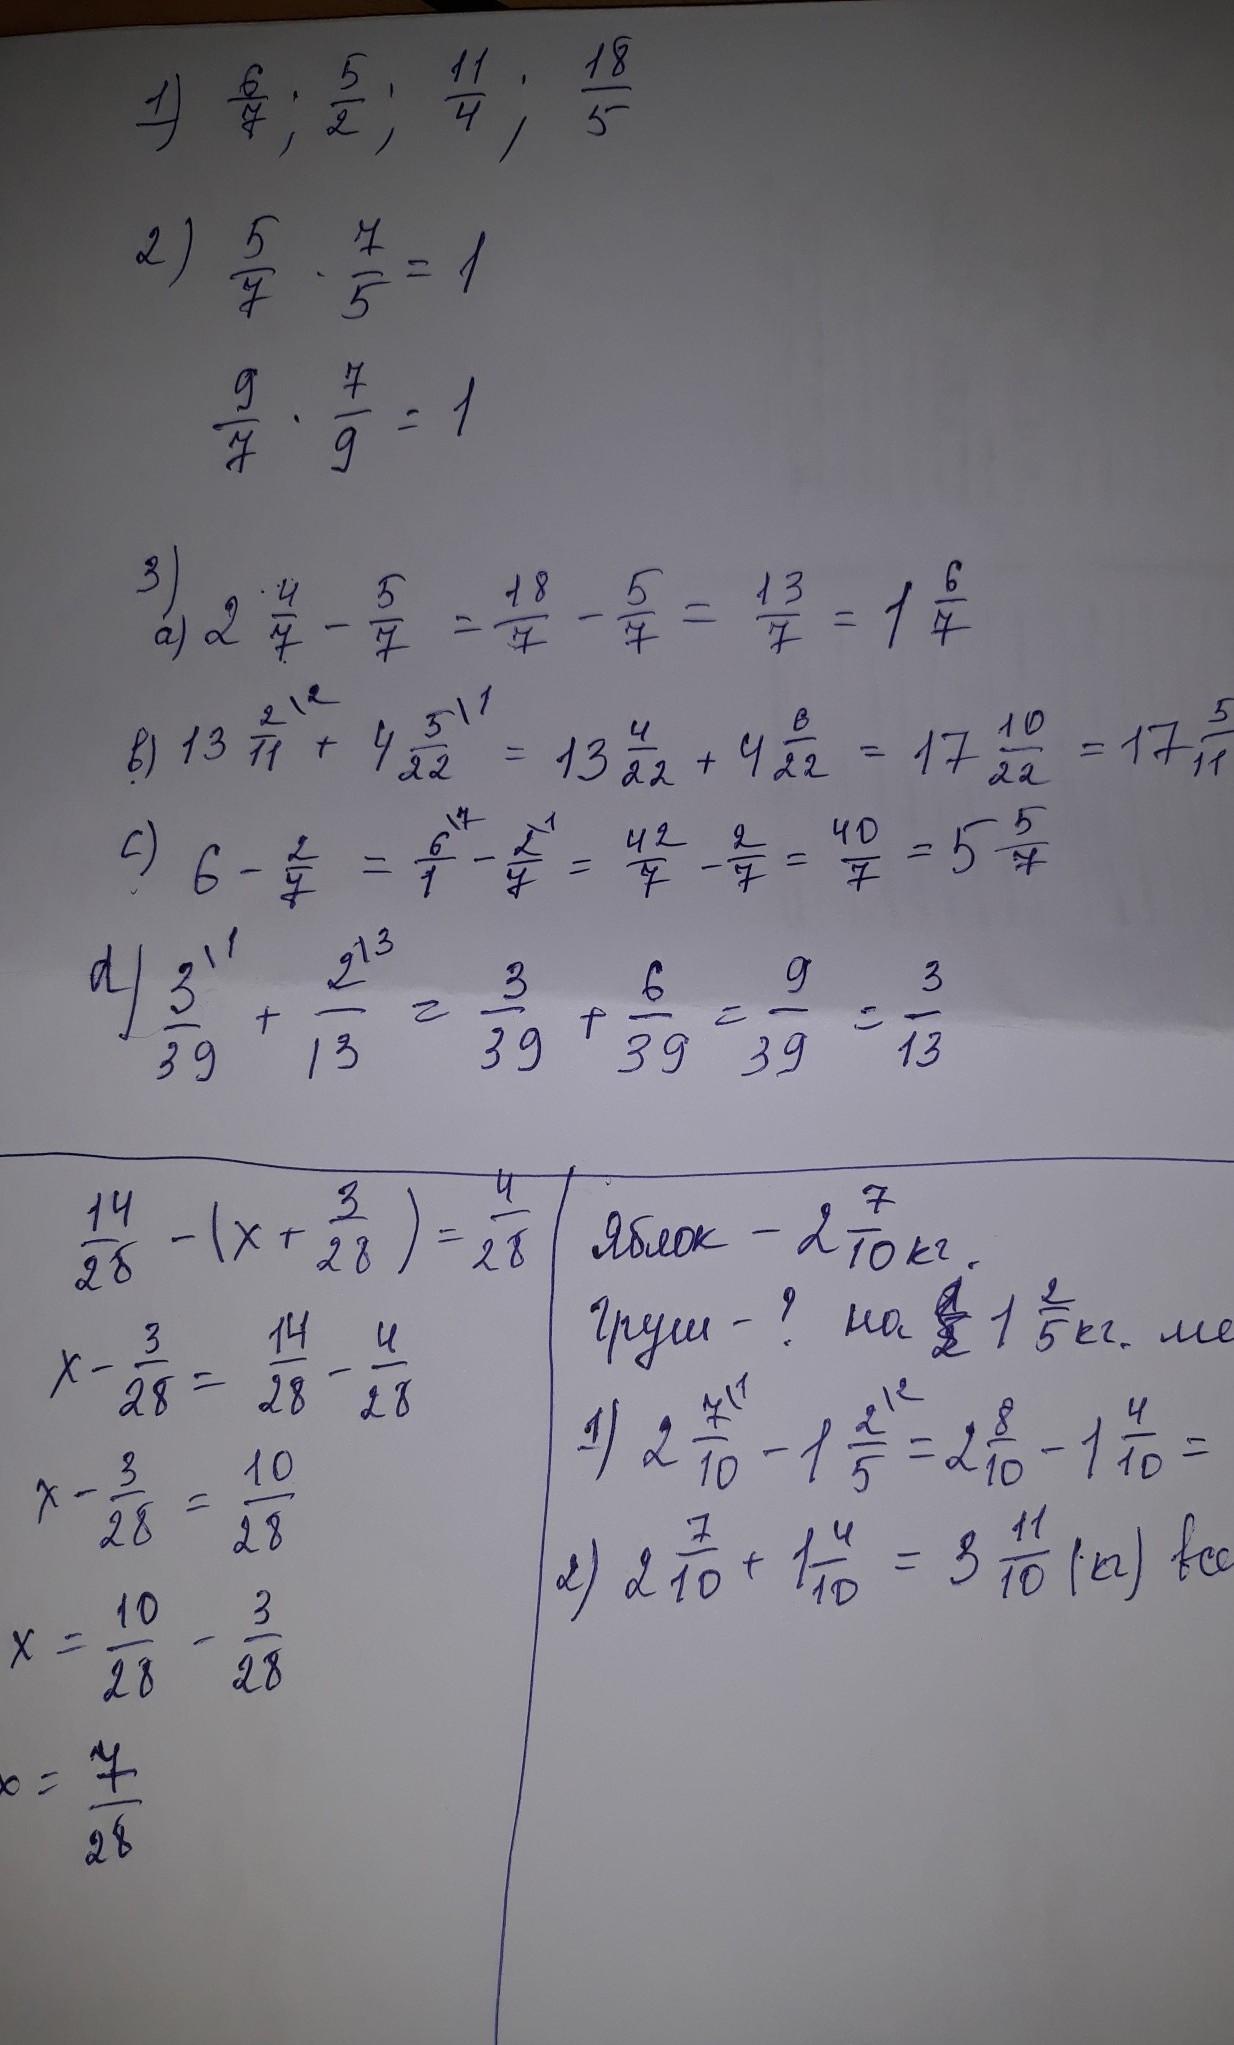 1) 6/7; 5/2; 11/4; 18/5
2) 5/7 · 7/5 = 1
9/7 · 7/9 = 1
3)
a) 2 4/7 - 5/7 = 18/7 - 5/7 = 13/7 = 1 6/7
b) 13 2/11 \2 + 4 5/22 \1 = 13 4/22 + 4 6/22 = 17 10/22 = 17 5/11
c) 6 - 2/7 = 6/1 \7 - 2/7 \1 = 42/7 - 2/7 = 40/7 = 5 5/7
d) 3/39 \1 + 2/13 \3 = 3/39 + 6/39 = 9/39 = 3/13
14/28 - (x + 3/28) = 4/28
x - 3/28 = 14/28 - 4/28
x - 3/28 = 10/28
x = 10/28 - 3/28
x = 7/28
Яблок - 2 7/10 кг.
Груш - ? на 1 2/5 кг. ме
1) 2 7/10 \1 - 1 2/5 \2 = 2 8/10 - 1 4/10 =
2) 2 7/10 + 1 4/10 = 3 11/10 (кг) все